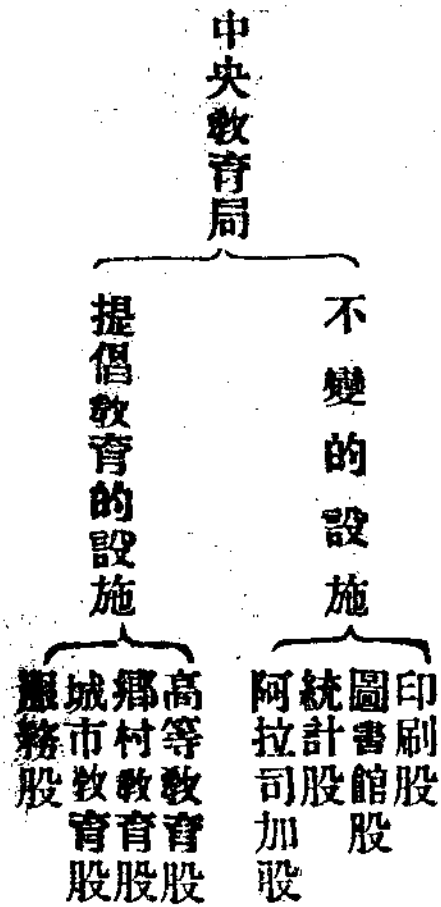 中央教育局
不變的設施
印刷股
圖書館股
統計股
阿拉司加股
提倡教育的設施
高等教育股
鄉村教育股
城市教育股
務股